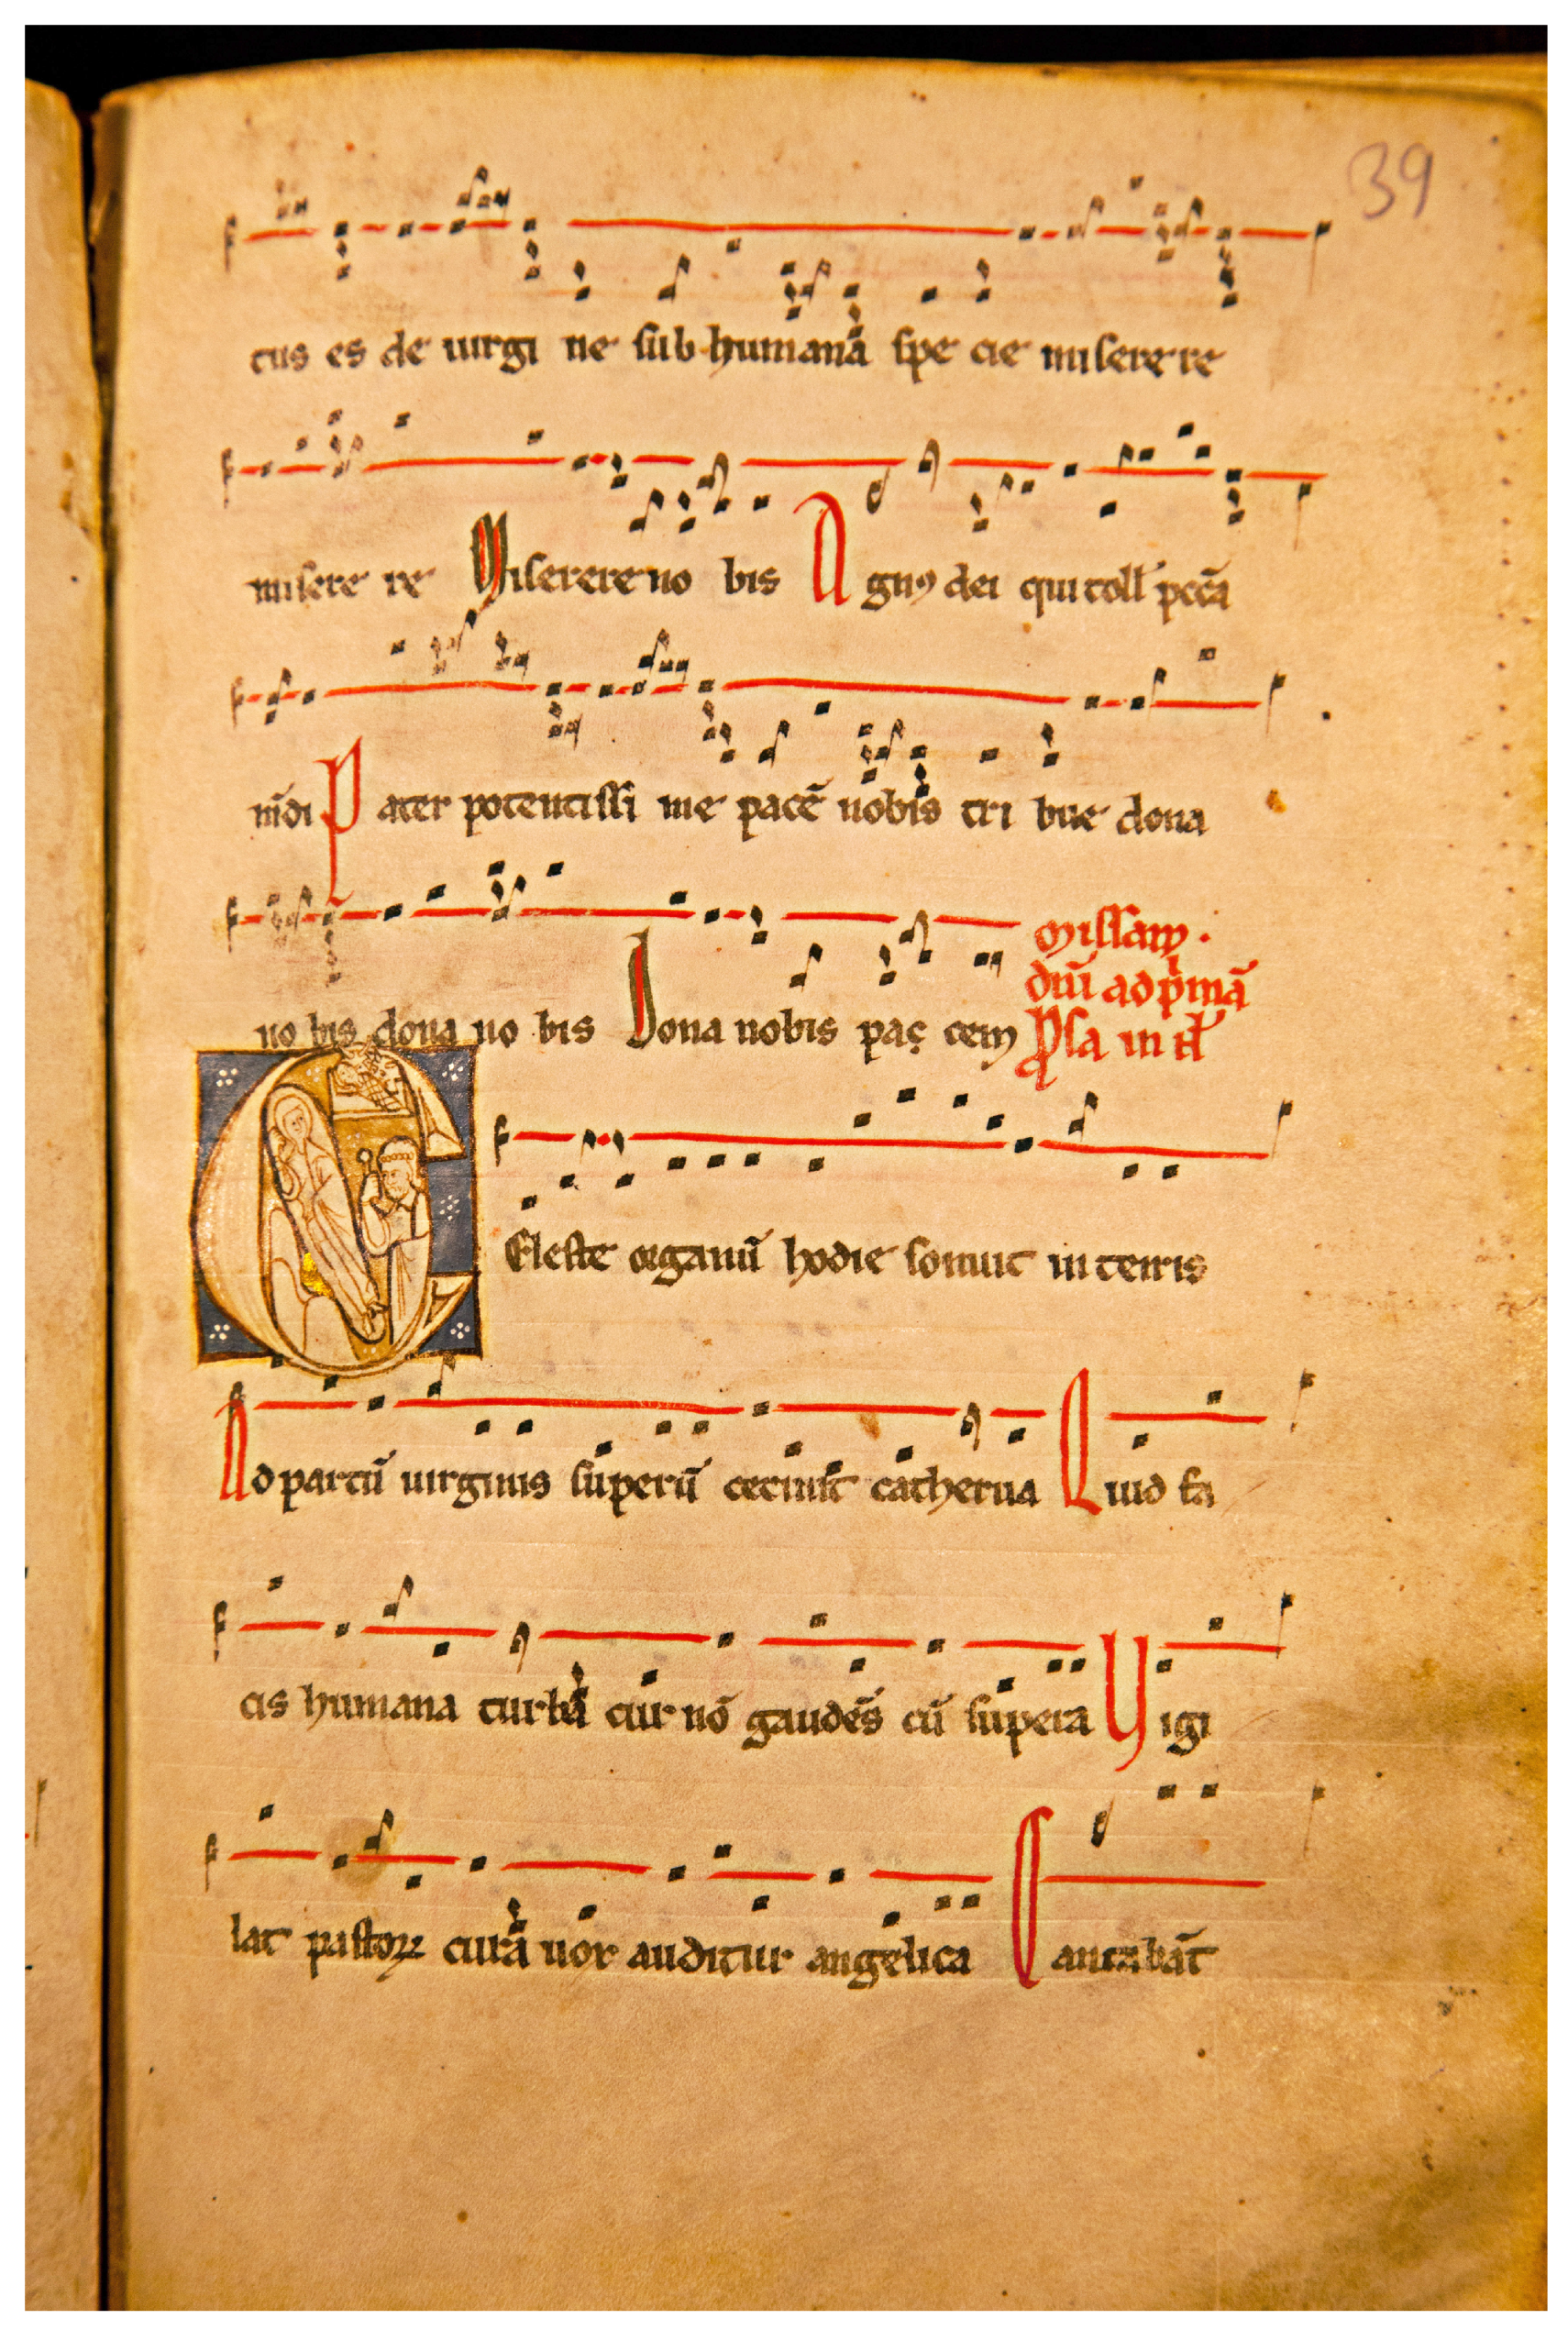 39
tus es de uirgi ne sub humana spe cie miserere
misere re Miserere no bis Agnꝰ dei qui toll' pccā
mūdi Pater potentissi me pacē nobis tri bue dona
Missam.
dn̄i ad p'mā
no bis dona no bis Dona nobis paç cem Psa in
Celeste organū hodie sonuit in terris
Ad partū uirginis superū cecinit catherua Quid fa
cis humana turba cur nō gaudēs cū supera Vigi
lat pastoꝝ cura uox auditur angelica Cantabāt